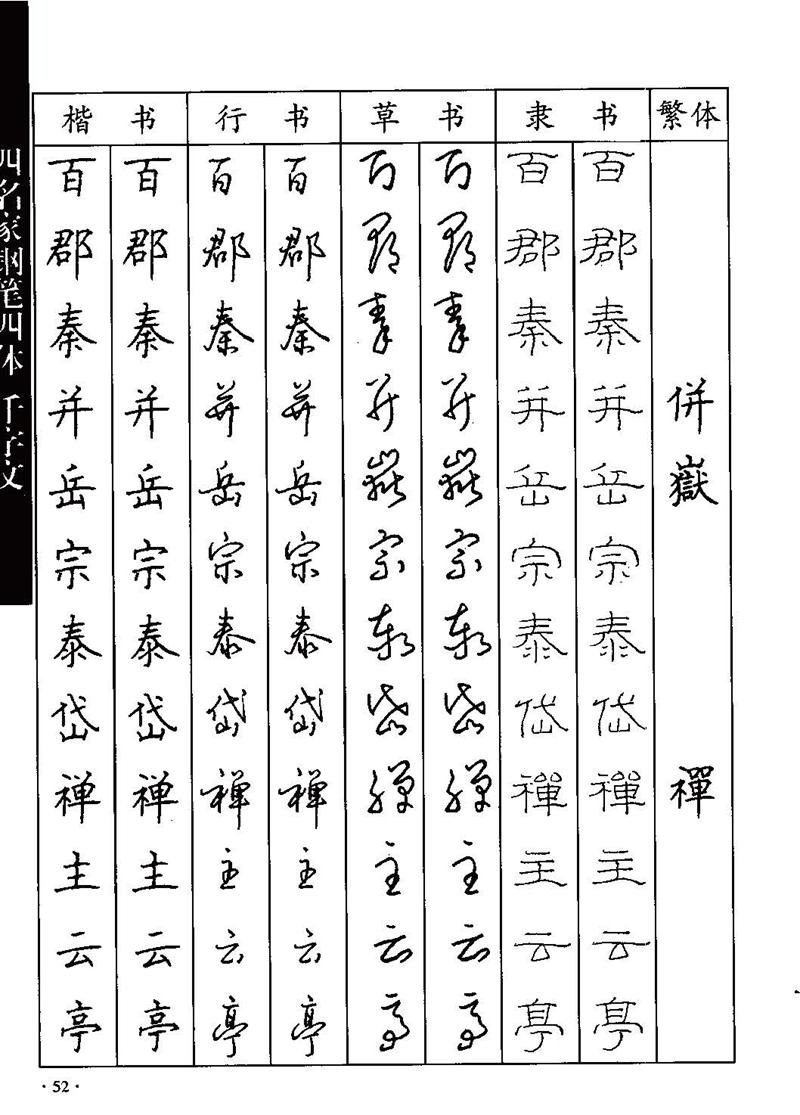 楷书 行书 草书 隶书 繁体
百 百 百 百 百 百 百 百
郡 郡 郡 郡 郡 郡 郡 郡
秦 秦 秦 秦 秦 秦 秦 秦
并 并 并 并 并 并 并 并 併
岳 岳 岳 岳 嶽 嶽 岳 岳 嶽
宗 宗 宗 宗 宗 宗 宗 宗
泰 泰 泰 泰 泰 泰 泰 泰
岱 岱 岱 岱 岱 岱 岱 岱
禅 禅 禅 禅 禪 禪 禪 禪 禪
主 主 主 主 主 主 主 主
云 云 云 云 云 云 云 云
亭 亭 亭 亭 亭 亭 亭 亭
四名家钢笔四体千字文
·52·